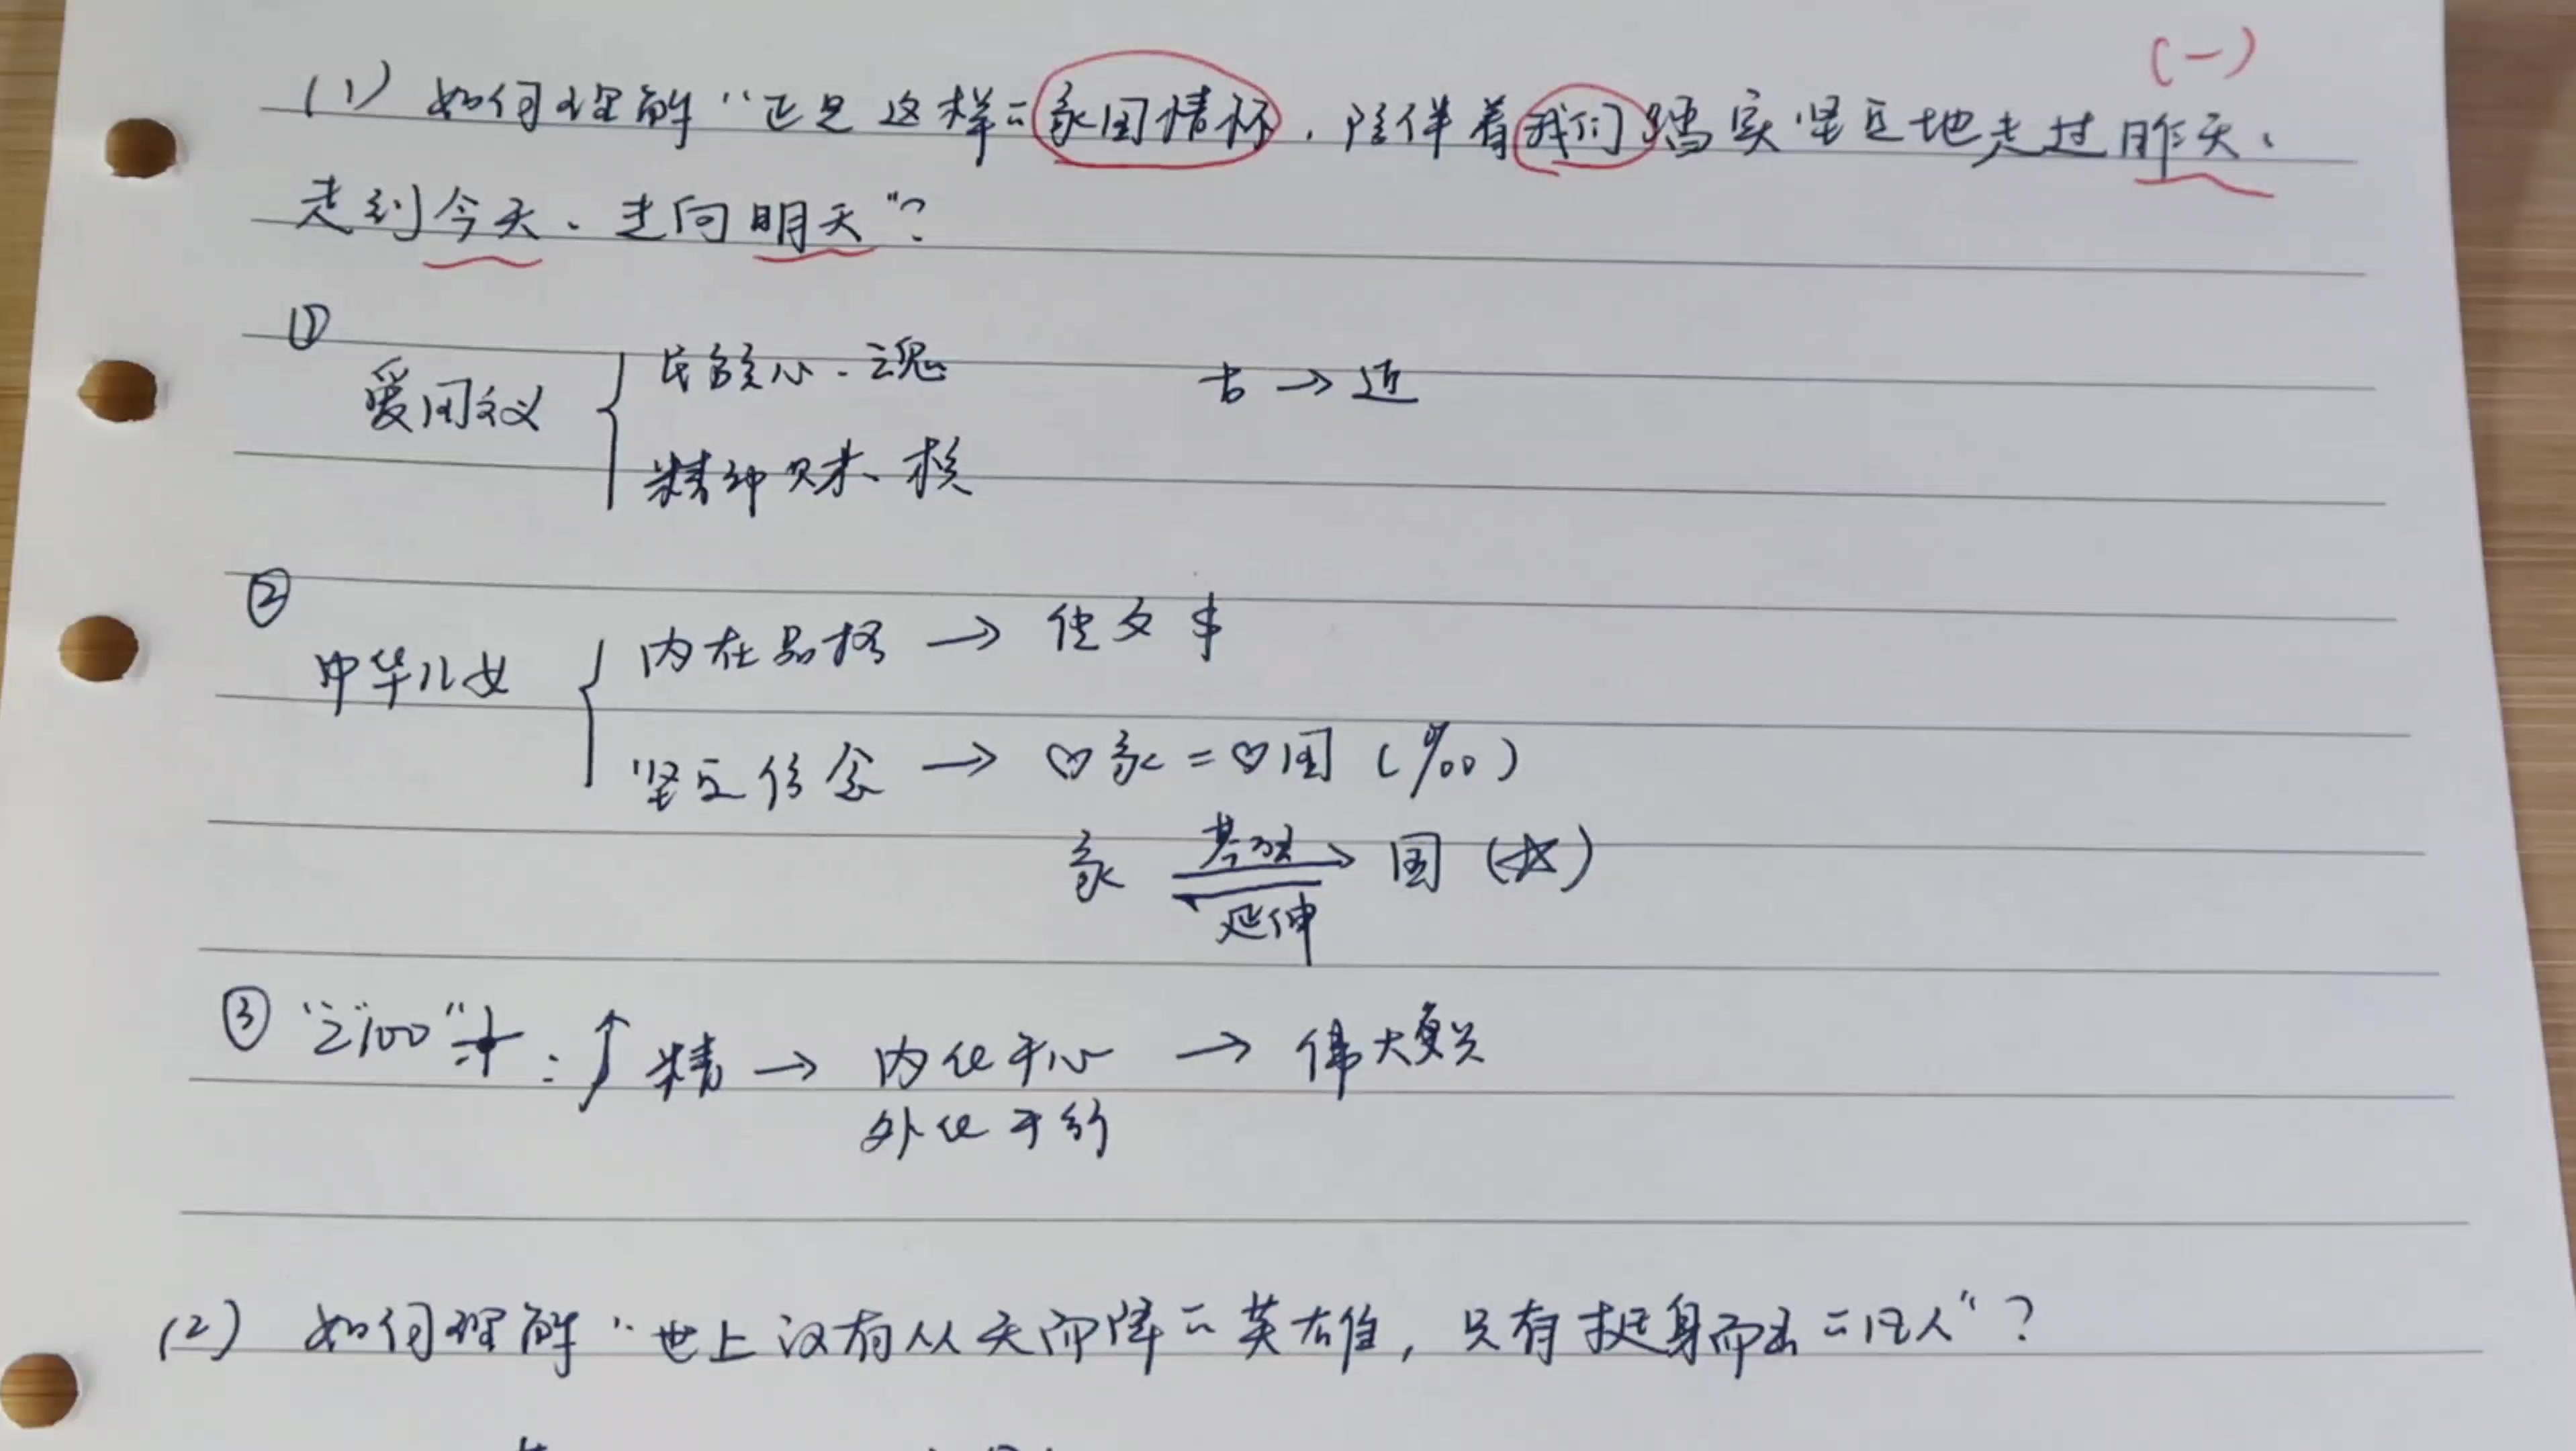 (一)
(1) 如何理解"正是这样二家国情怀,陪伴着我们踏实坚定地走过昨天、
走到今天、走向明天"?
① 爱国主义 { 民族心、魂 古→近
精神财、核
② 中华儿女 { 内在品格 → 优文丰
坚定信念 → ♡家=♡国 (‰)
家 基础 国 (☆)
延伸
③ "之100" : ↑精 → 内化于心 → 伟大复兴
外化于行
(2) 如何理解"世上没有从天而降二英雄,只有挺身而出二凡人"?